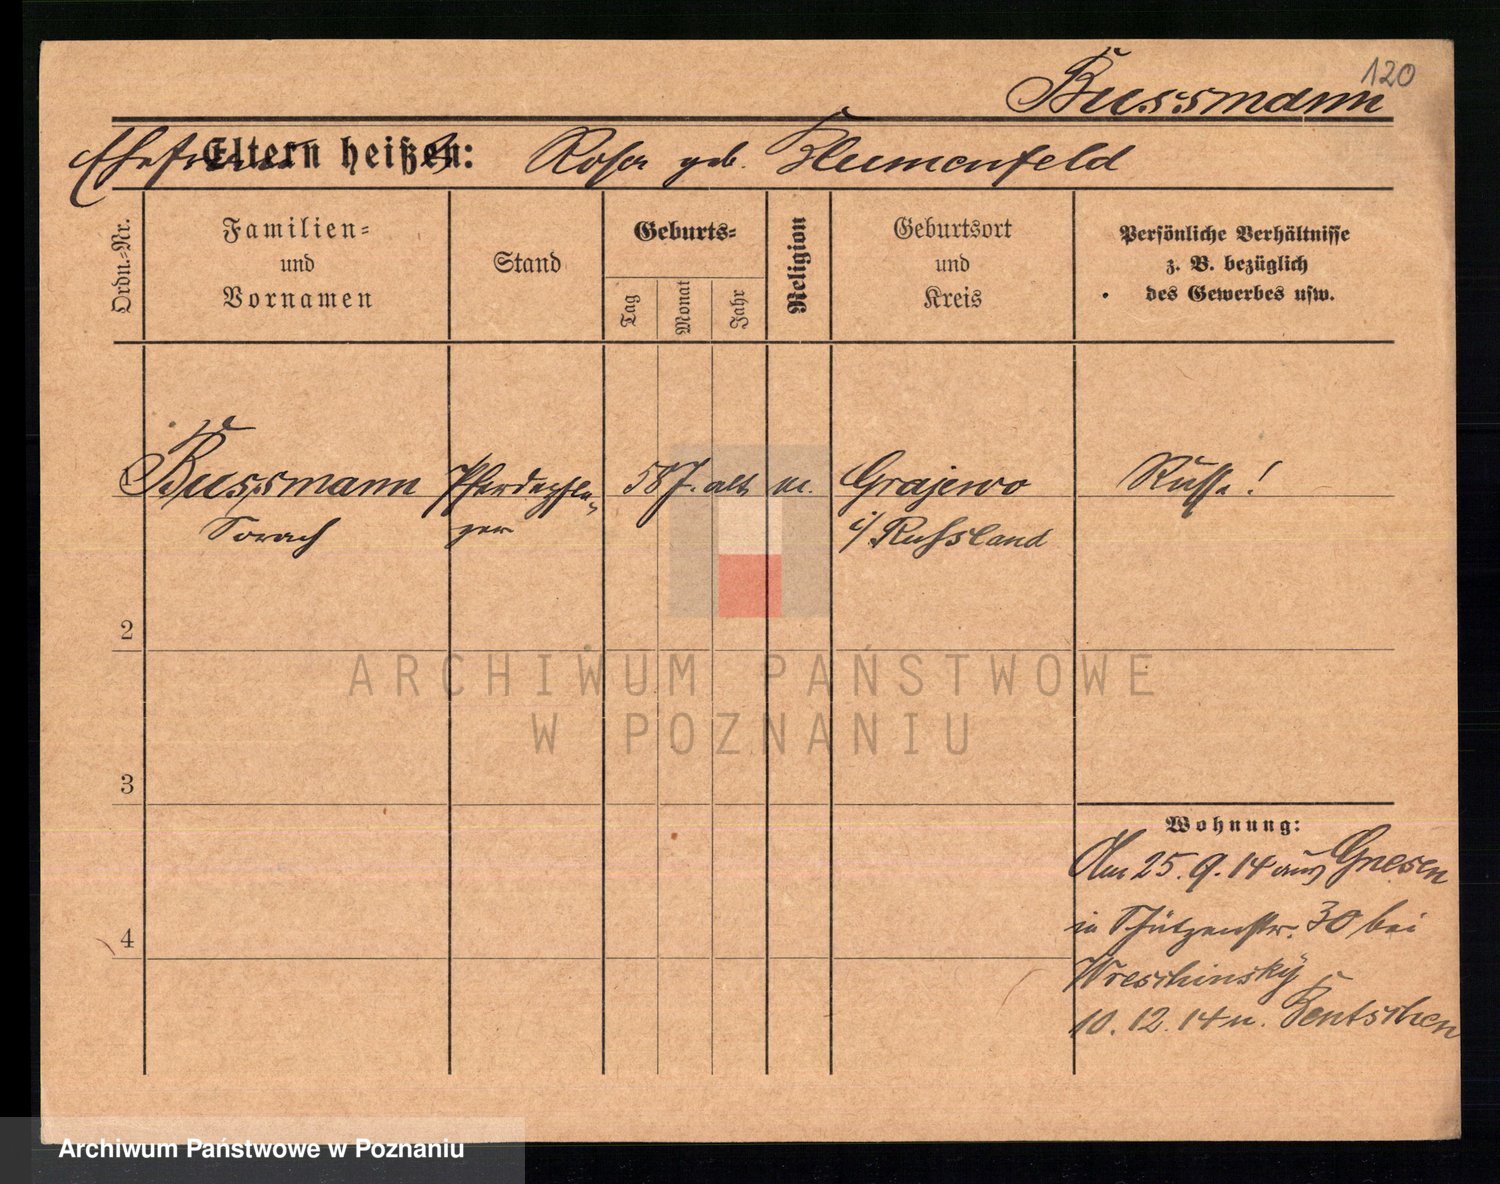 120
Bussmann
Ehefrau
Eltern heißen: Rosa geb. Blumenfeld
Ordn.=Nr.
Familien=
und
Vornamen
Stand
Geburts=
Tag
Monat
Jahr
Religion
Geburtsort
und
Kreis
Persönliche Verhältnisse
z. B. bezüglich
des Gewerbes usw.
Bussmann Pferdepfle- 58 J. alt m. Grajewo Russe!
Sorach ger i/ Russland
2
3
4
Wohnung:
Am 25. 9. 14 aus Gnesen
in Schützenstr. 30 bei
Wreschinsky
10. 12. 14 n. Bentschen
ARCHIWUM PAŃSTWOWE
W POZNANIU
Archiwum Państwowe w Poznaniu